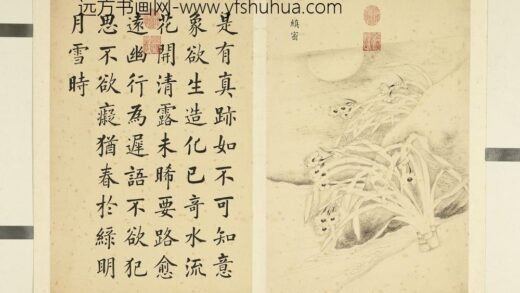 远方书画网-www.yfshuhua.com
縝密
是有真跡如不可知意
象欲生造化已奇水流
花開清露未晞要路愈
遠幽行為遲語不欲犯
思不欲癡猶春於綠明
月雪時